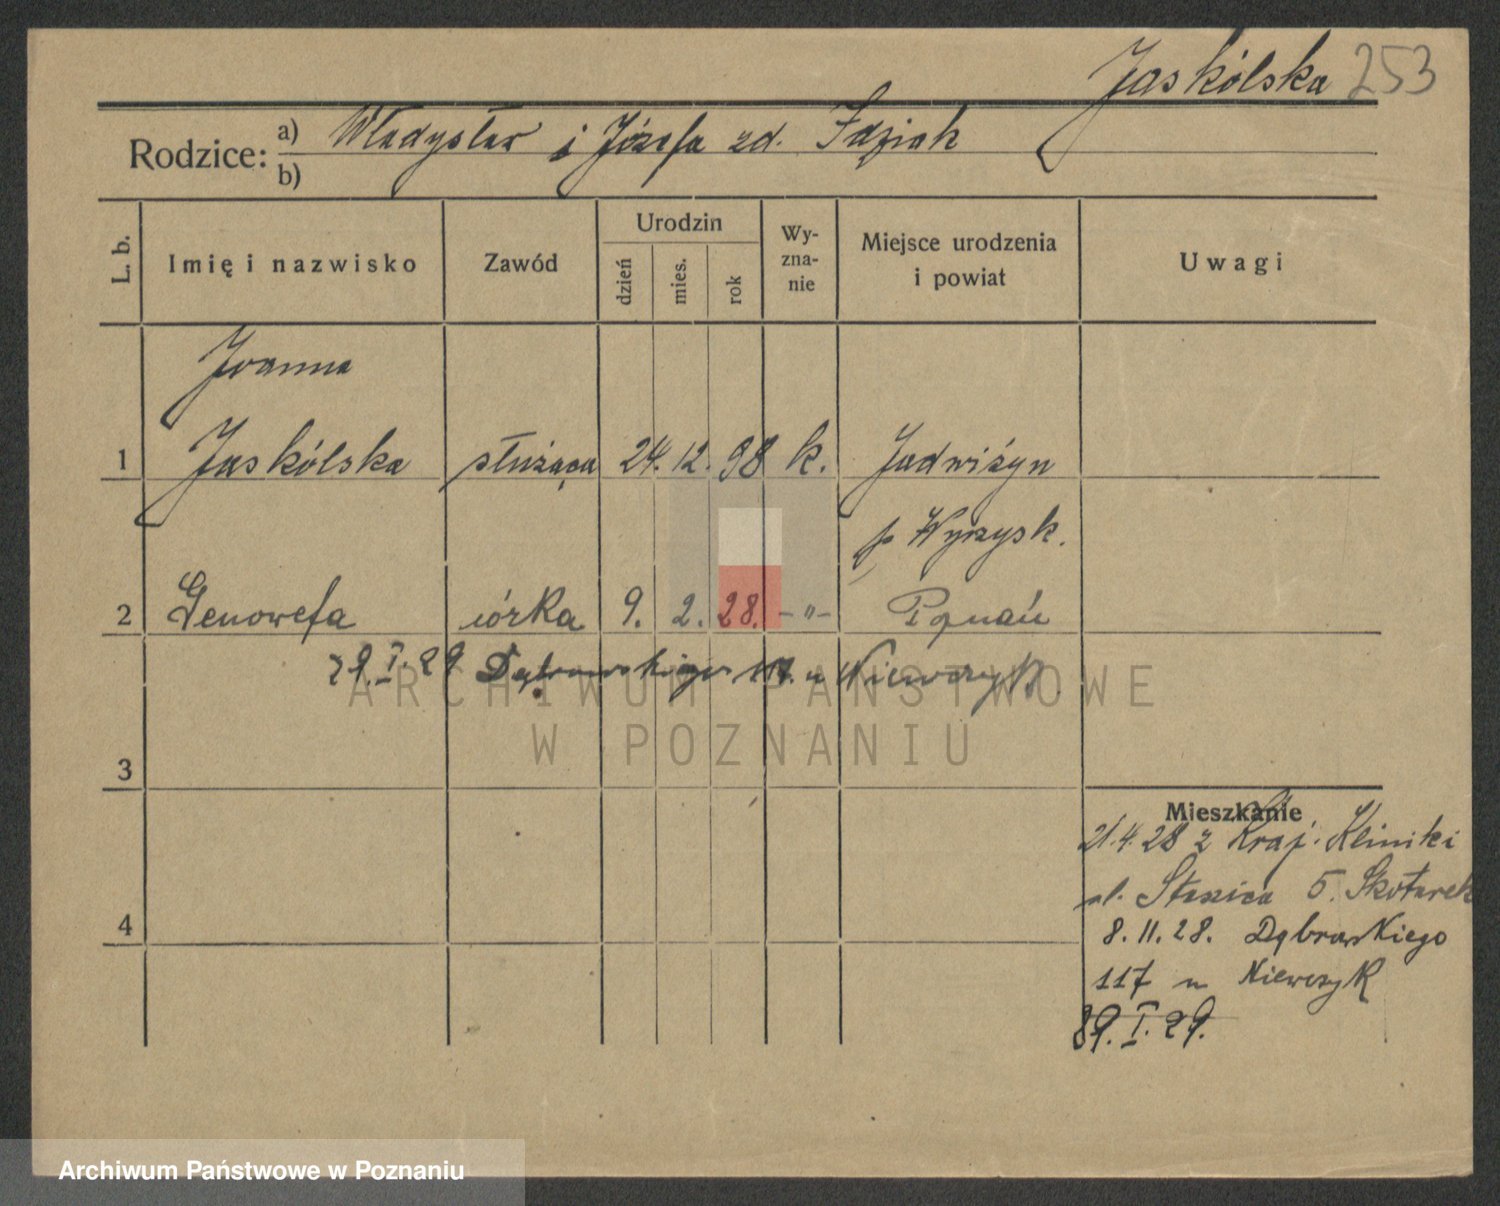 Jaskólska 253
Rodzice: a) Władysław i Józefa zd. Idziak
b)
L. b. Imię i nazwisko Zawód Urodzin dzień mies. rok Wy-zna-nie Miejsce urodzenia i powiat Uwagi
Joanna
1 Jaskólska służąca 24. 12. 98 k. Jadwiżyn
p. Wyrzysk.
2 Genowefa córka 9. 2. 28. -"- Poznań
29. I. 29 Dąbrowskiego 117. u Niewczyk
3
Mieszkanie
21.4.28 z Kraj. Kliniki
ul. Staszica 5. Skotarek
4 8. 11. 28. Dąbrowskiego
117 u Niewczyk
29. I. 29.
ARCHIWUM PAŃSTWOWE
W POZNANIU
Archiwum Państwowe w Poznaniu